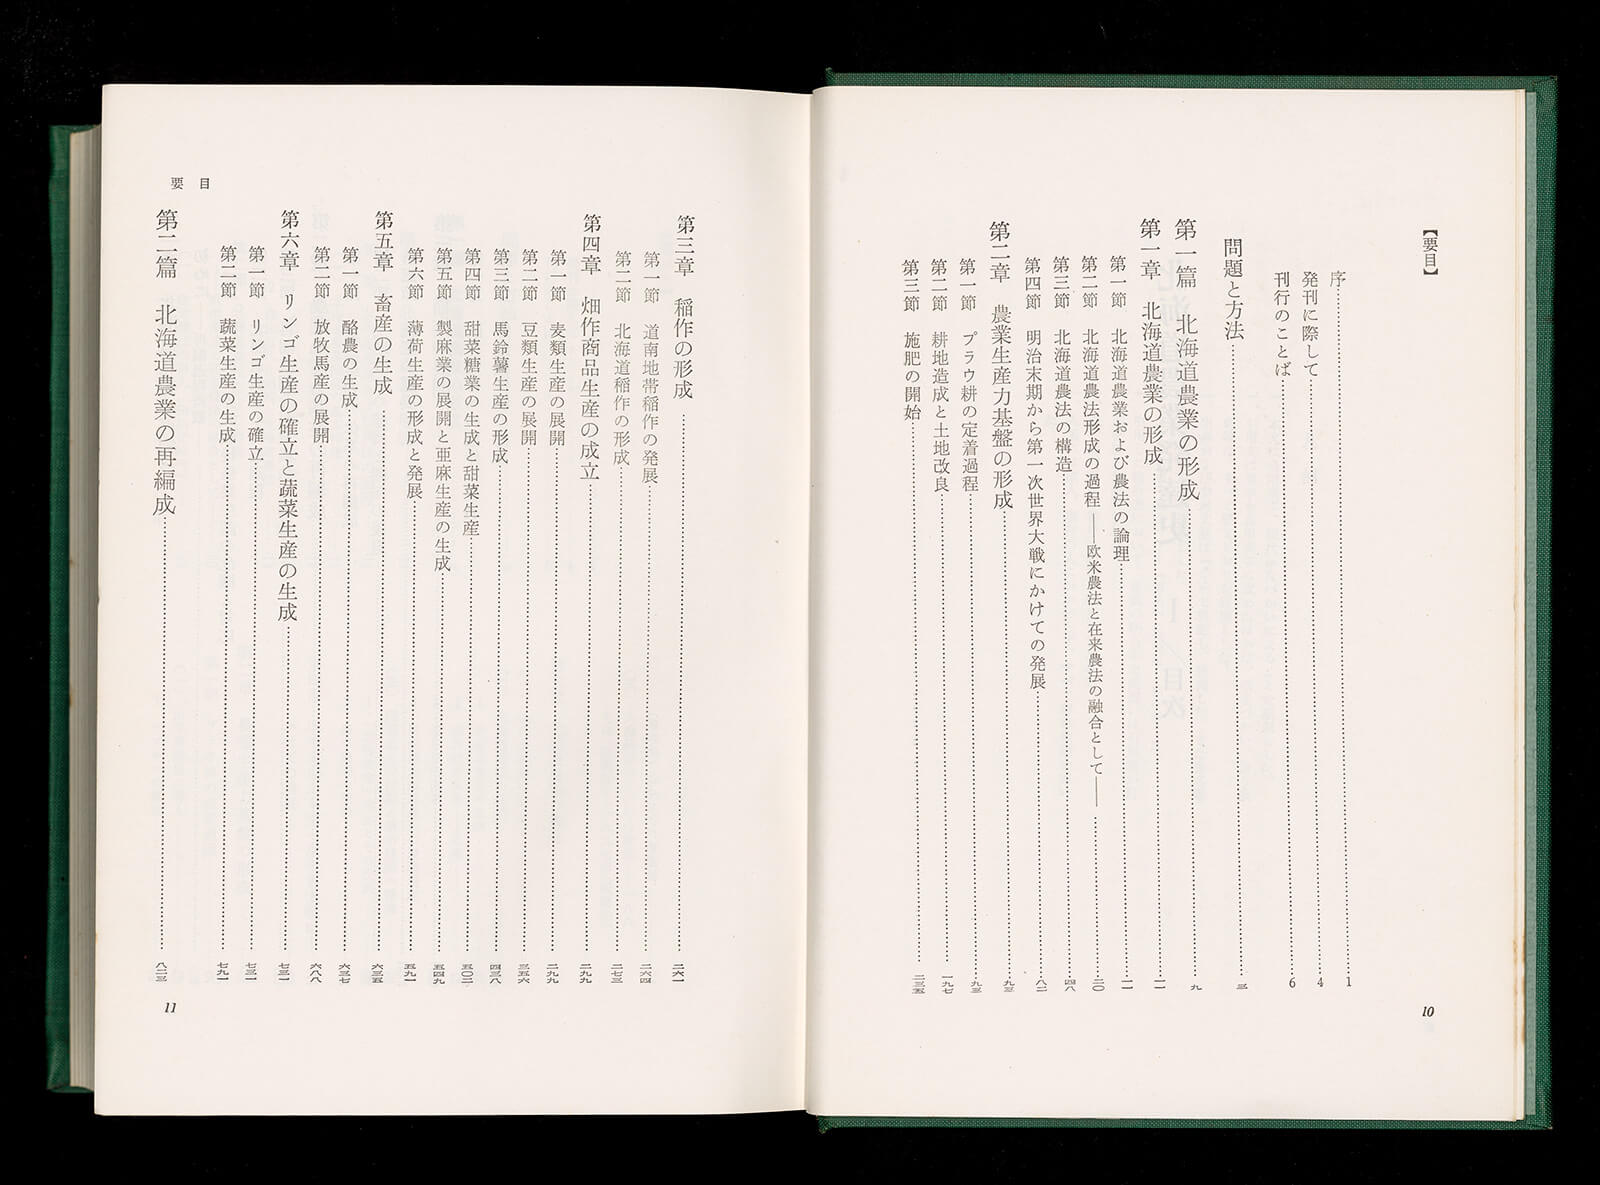 【要目】
序……1
発刊に際して……4
刊行のことば……6
問題と方法……三
第一篇 北海道農業の形成……九
第一章 北海道農業の形成……一一
第一節 北海道農業および農法の論理……一一
第二節 北海道農法形成の過程——欧米農法と在来農法の融合として——……二〇
第三節 北海道農法の構造……四八
第四節 明治末期から第一次世界大戦にかけての発展……八二
第二章 農業生産力基盤の形成……九三
第一節 プラウ耕の定着過程……九三
第二節 耕地造成と土地改良……一九七
第三節 施肥の開始……二三五
10
要目
第三章 稲作の形成……二六一
第一節 道南地帯稲作の発展……二六四
第二節 北海道稲作の形成……二七三
第四章 畑作商品生産の成立……二九九
第一節 麦類生産の展開……二九九
第二節 豆類生産の展開……三五六
第三節 馬鈴薯生産の形成……四三八
第四節 甜菜糖業の生成と甜菜生産……五〇二
第五節 製麻業の展開と亜麻生産の生成……五四九
第六節 薄荷生産の形成と発展……五九一
第五章 畜産の生成……六三五
第一節 酪農の生成……六三七
第二節 放牧馬産の展開……六八八
第六章 リンゴ生産の確立と蔬菜生産の生成……七三一
第一節 リンゴ生産の確立……七三一
第二節 蔬菜生産の生成……七九一
第二篇 北海道農業の再編成……八二三
11